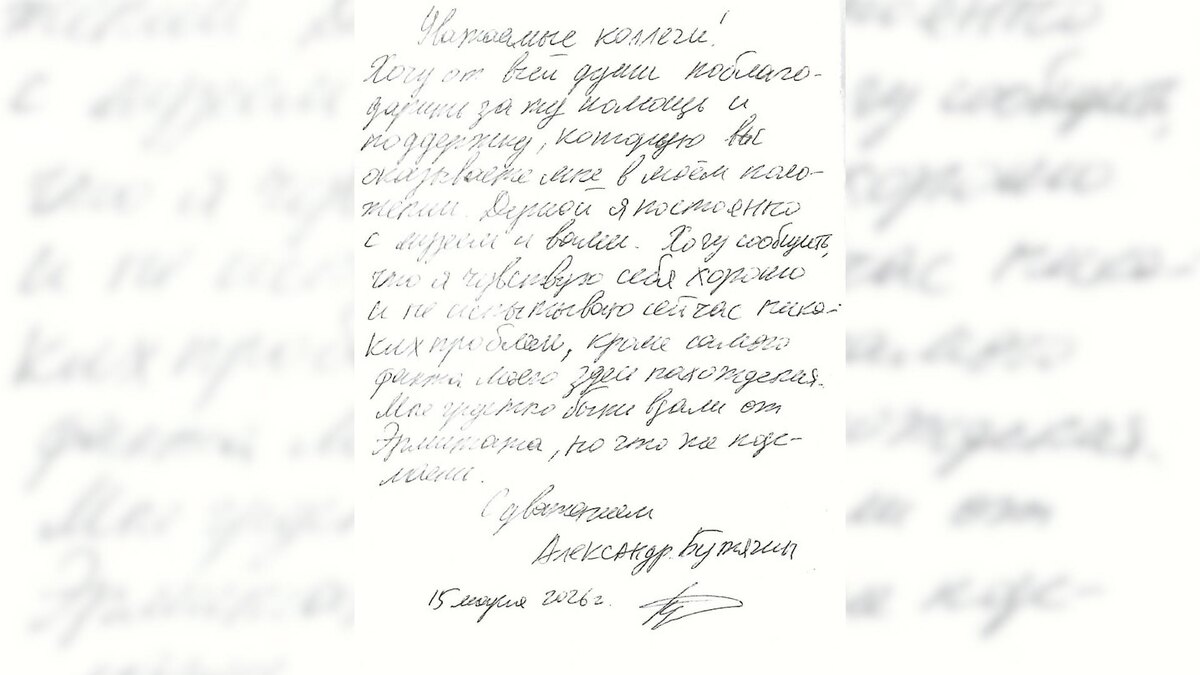 Уважаемые коллеги!
Хочу от всей души поблаго-
дарить за ту помощь и
поддержку, которую вы
оказываете мне в моём поло-
жении. Душой я постоянно
с музеем и вами. Хочу сообщить,
что я чувствую себя хорошо
и не испытываю сейчас ника-
ких проблем, кроме самого
факта моего здесь нахождения.
Мне грустно быть вдали от
Эрмитажа, но что же
С уважением
Александр Бутягин
15 марта 2026 г.